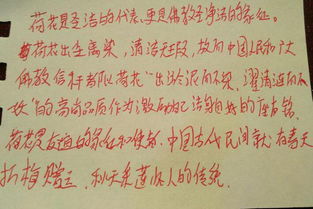 荷花是圣洁的代表,更是佛教圣净洁的象征。
荷花出尘离染,清洁无瑕,故而中国人民和广
佛教信仔者都以荷花“出淤泥而不染,濯清涟而不
妖”的高尚品质作为激励自己洁身自好的座右铭。
荷花是友谊的象征和使者,中国古代民间就有春天
折梅赠远,秋天采莲怀人的传统。